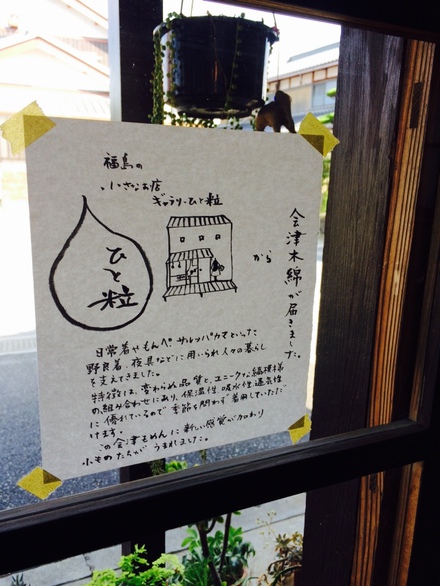 福島の
小さなお店
ギャラリーひと粒
ひと粒
から
会津木綿が届きました。
日常着やもんぺ サルッパカマといった
野良着、夜具などに用いられ人々の暮らし
を支えてきました。
特徴は、変わらぬ品質と、ユニークな縞模様
の組み合わせにあり、保温性、吸水性、通気性
に優れているので季節を問わず着用していただ
けます。
この会津もめんに新しい感覚が加わり
小ものたちがうまれました。